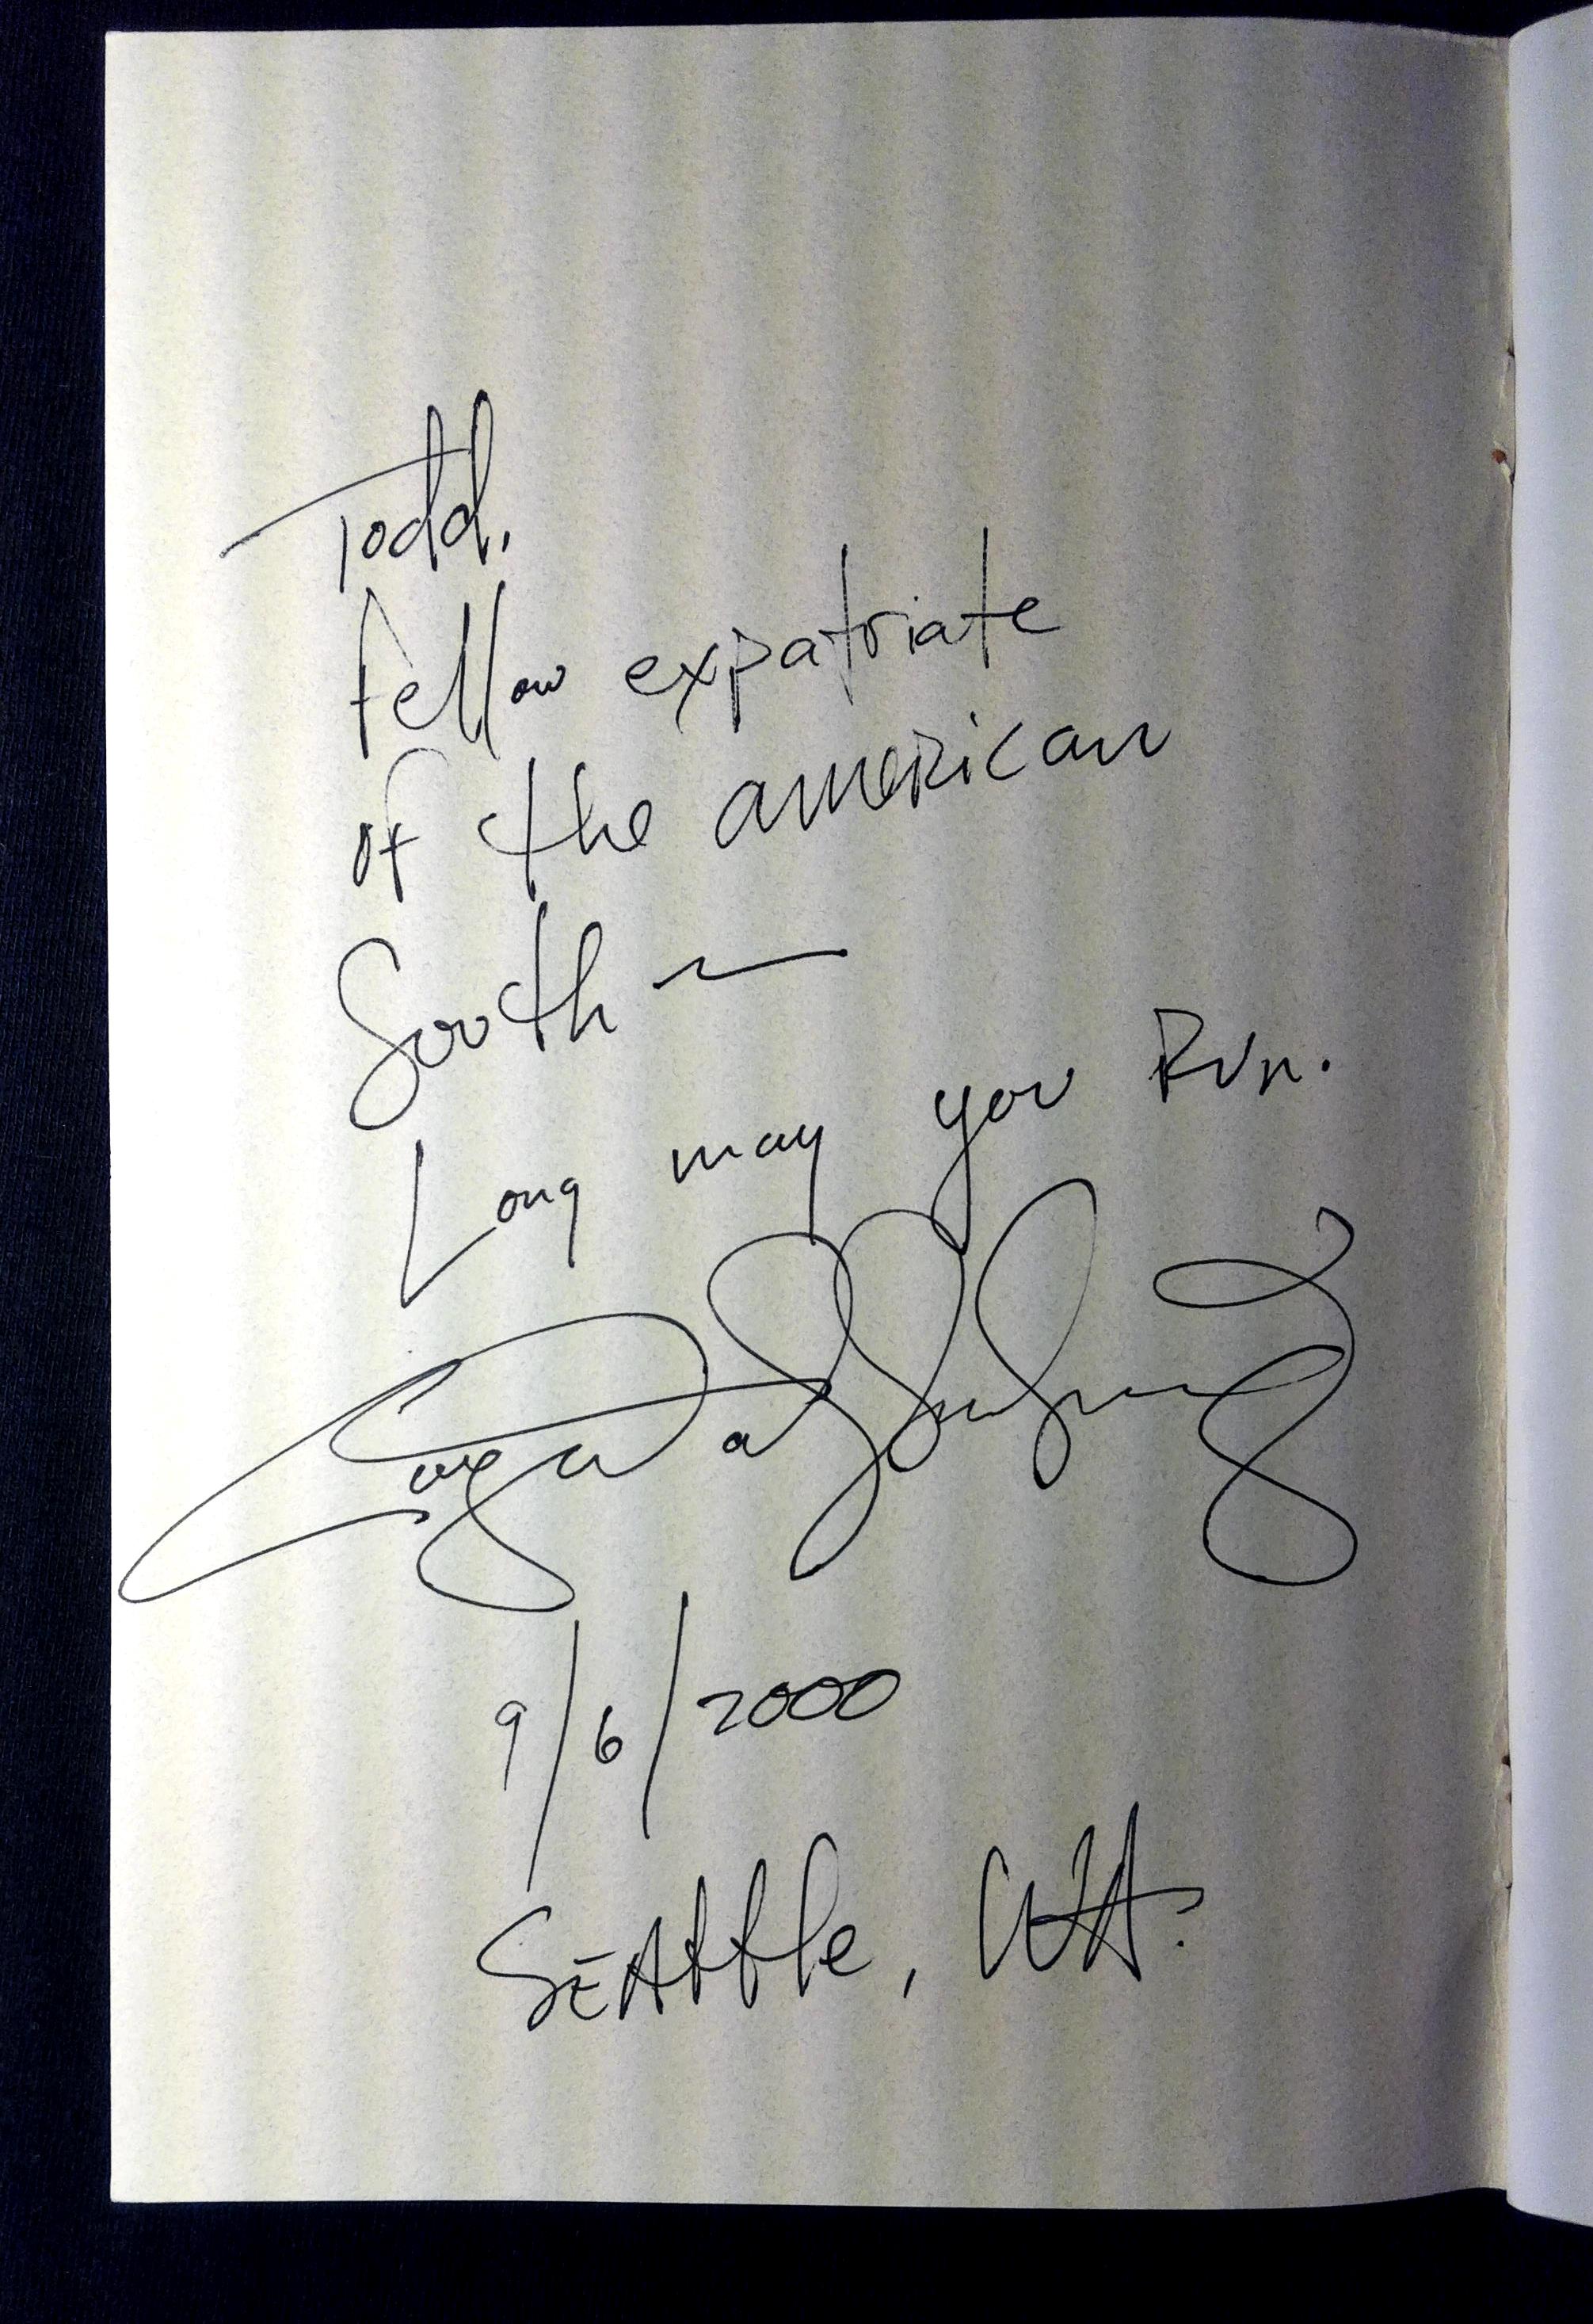 Todd,
Fellow expatriate
of the american
South —
Long may you Run.
9/6/2000
SEAttle, WA.